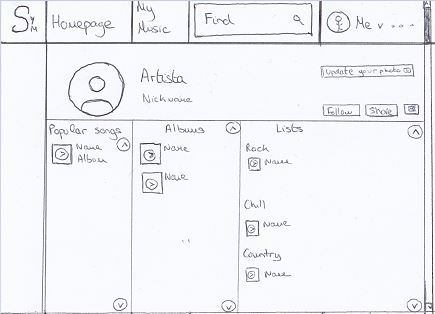 SyM
Homepage
My
Music
Find
Me
Artista
Nickname
Update your photo
Follow
Share
Popular songs
Name
Album
Albums
Name
Name
Lists
Rock
Name
Chill
Name
Country
Name